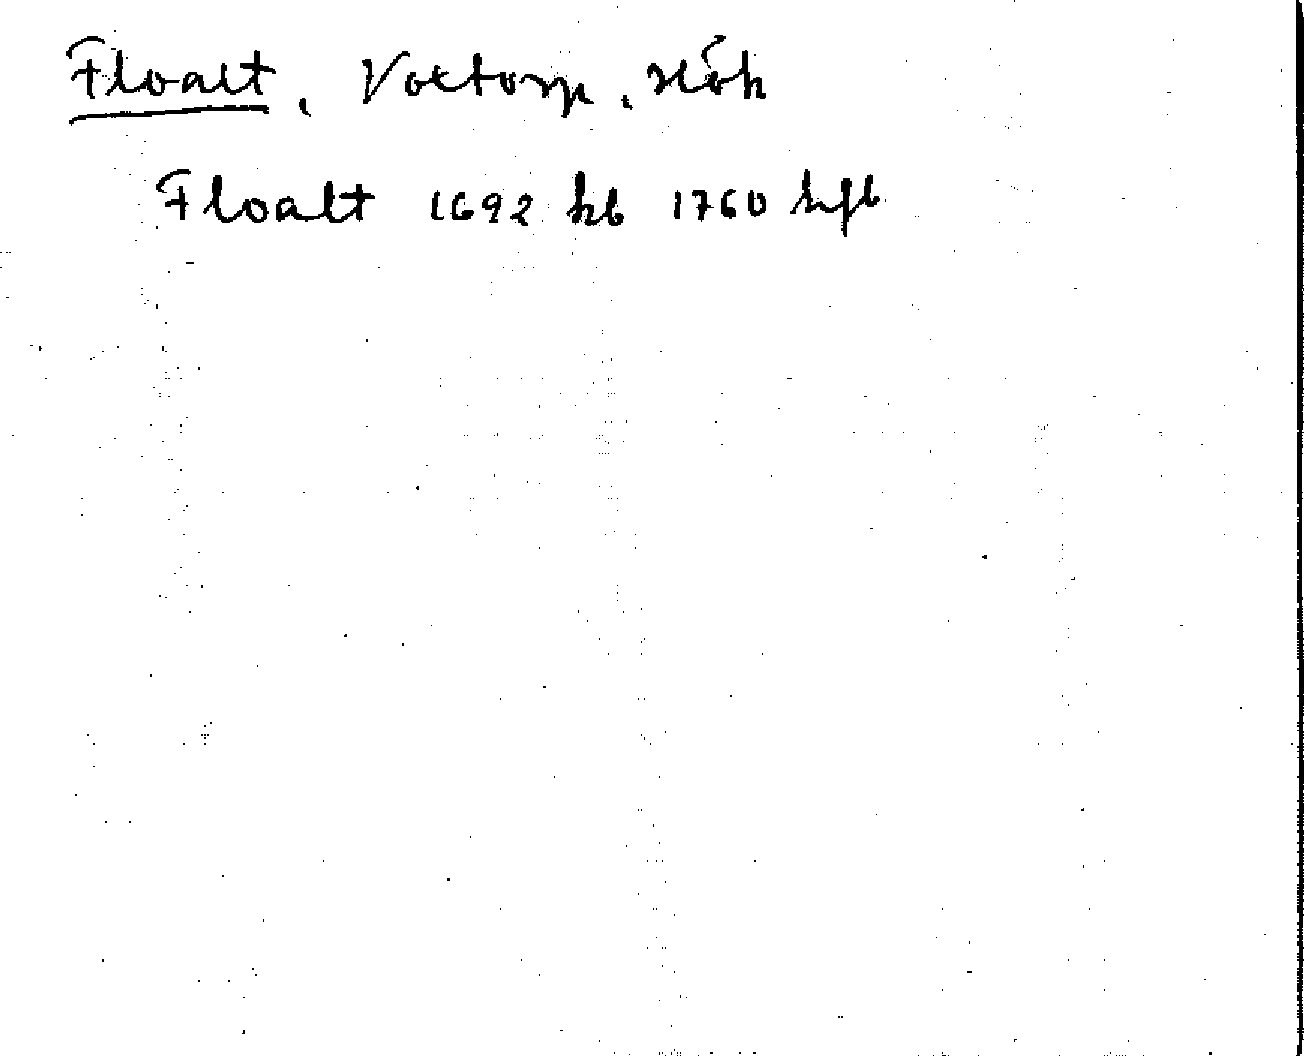 Floalt, Voxtorp, Hök
Floalt 1692 kb 1760 hfb